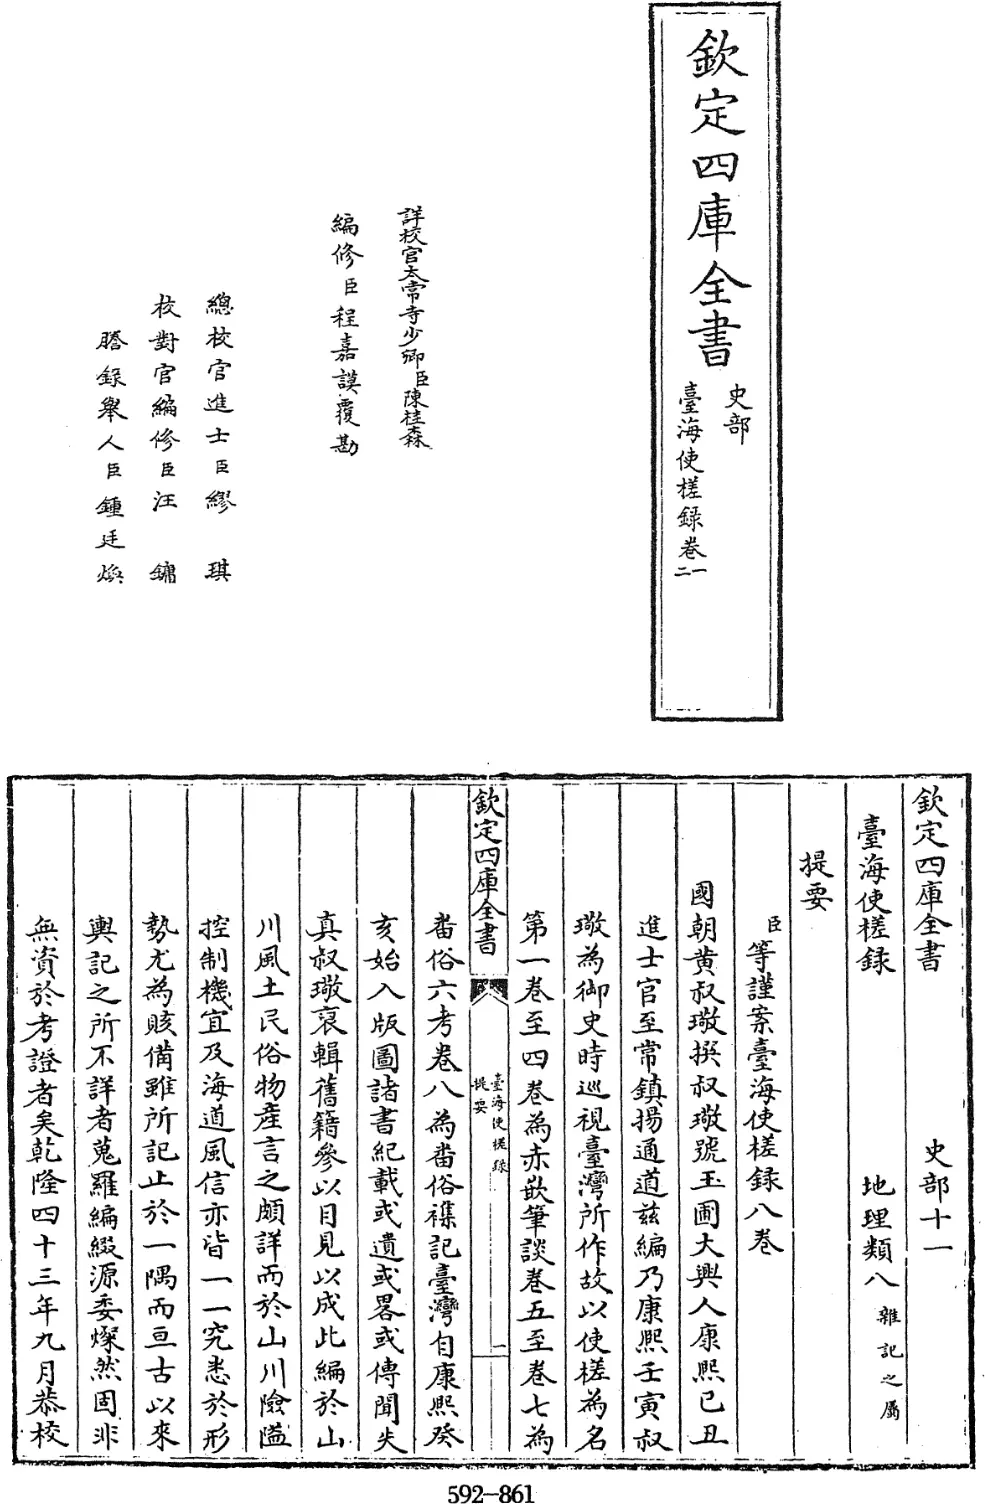 欽定四庫全書
史部
臺海使槎録卷一
二
詳校官太常寺少卿臣陳桂森
編修臣程嘉謨覆勘
總校官進士臣繆琪
校對官編修臣汪鏞
謄録舉人臣鍾廷煥
欽定四庫全書 史部十一
臺海使槎録 地理類八雜記之屬
提要
臣等謹案臺海使槎録八卷
國朝黄叔璥撰叔璥號玉圃大興人康熙己丑
進士官至常鎮揚通道兹編乃康熙壬寅叔
璥為御史時巡視臺灣所作故以使槎為名
第一卷至四卷為赤嵌筆談卷五至卷七為
欽定四庫全書
臺海使槎録
提要
一
畨俗六考卷八為畨俗襍記臺灣自康熙癸
亥始入版圖諸書紀載或遺或畧或傳聞失
真叔璥裒輯舊籍參以目見以成此編於山
川風土民俗物産言之頗詳而於山川險隘
控制機宜及海道風信亦皆一一究悉於形
勢尤為賅備雖所記止於一隅而亘古以來
輿記之所不詳者蒐羅編綴源委燦然固非
無資於考證者矣乾隆四十三年九月恭校
592-861